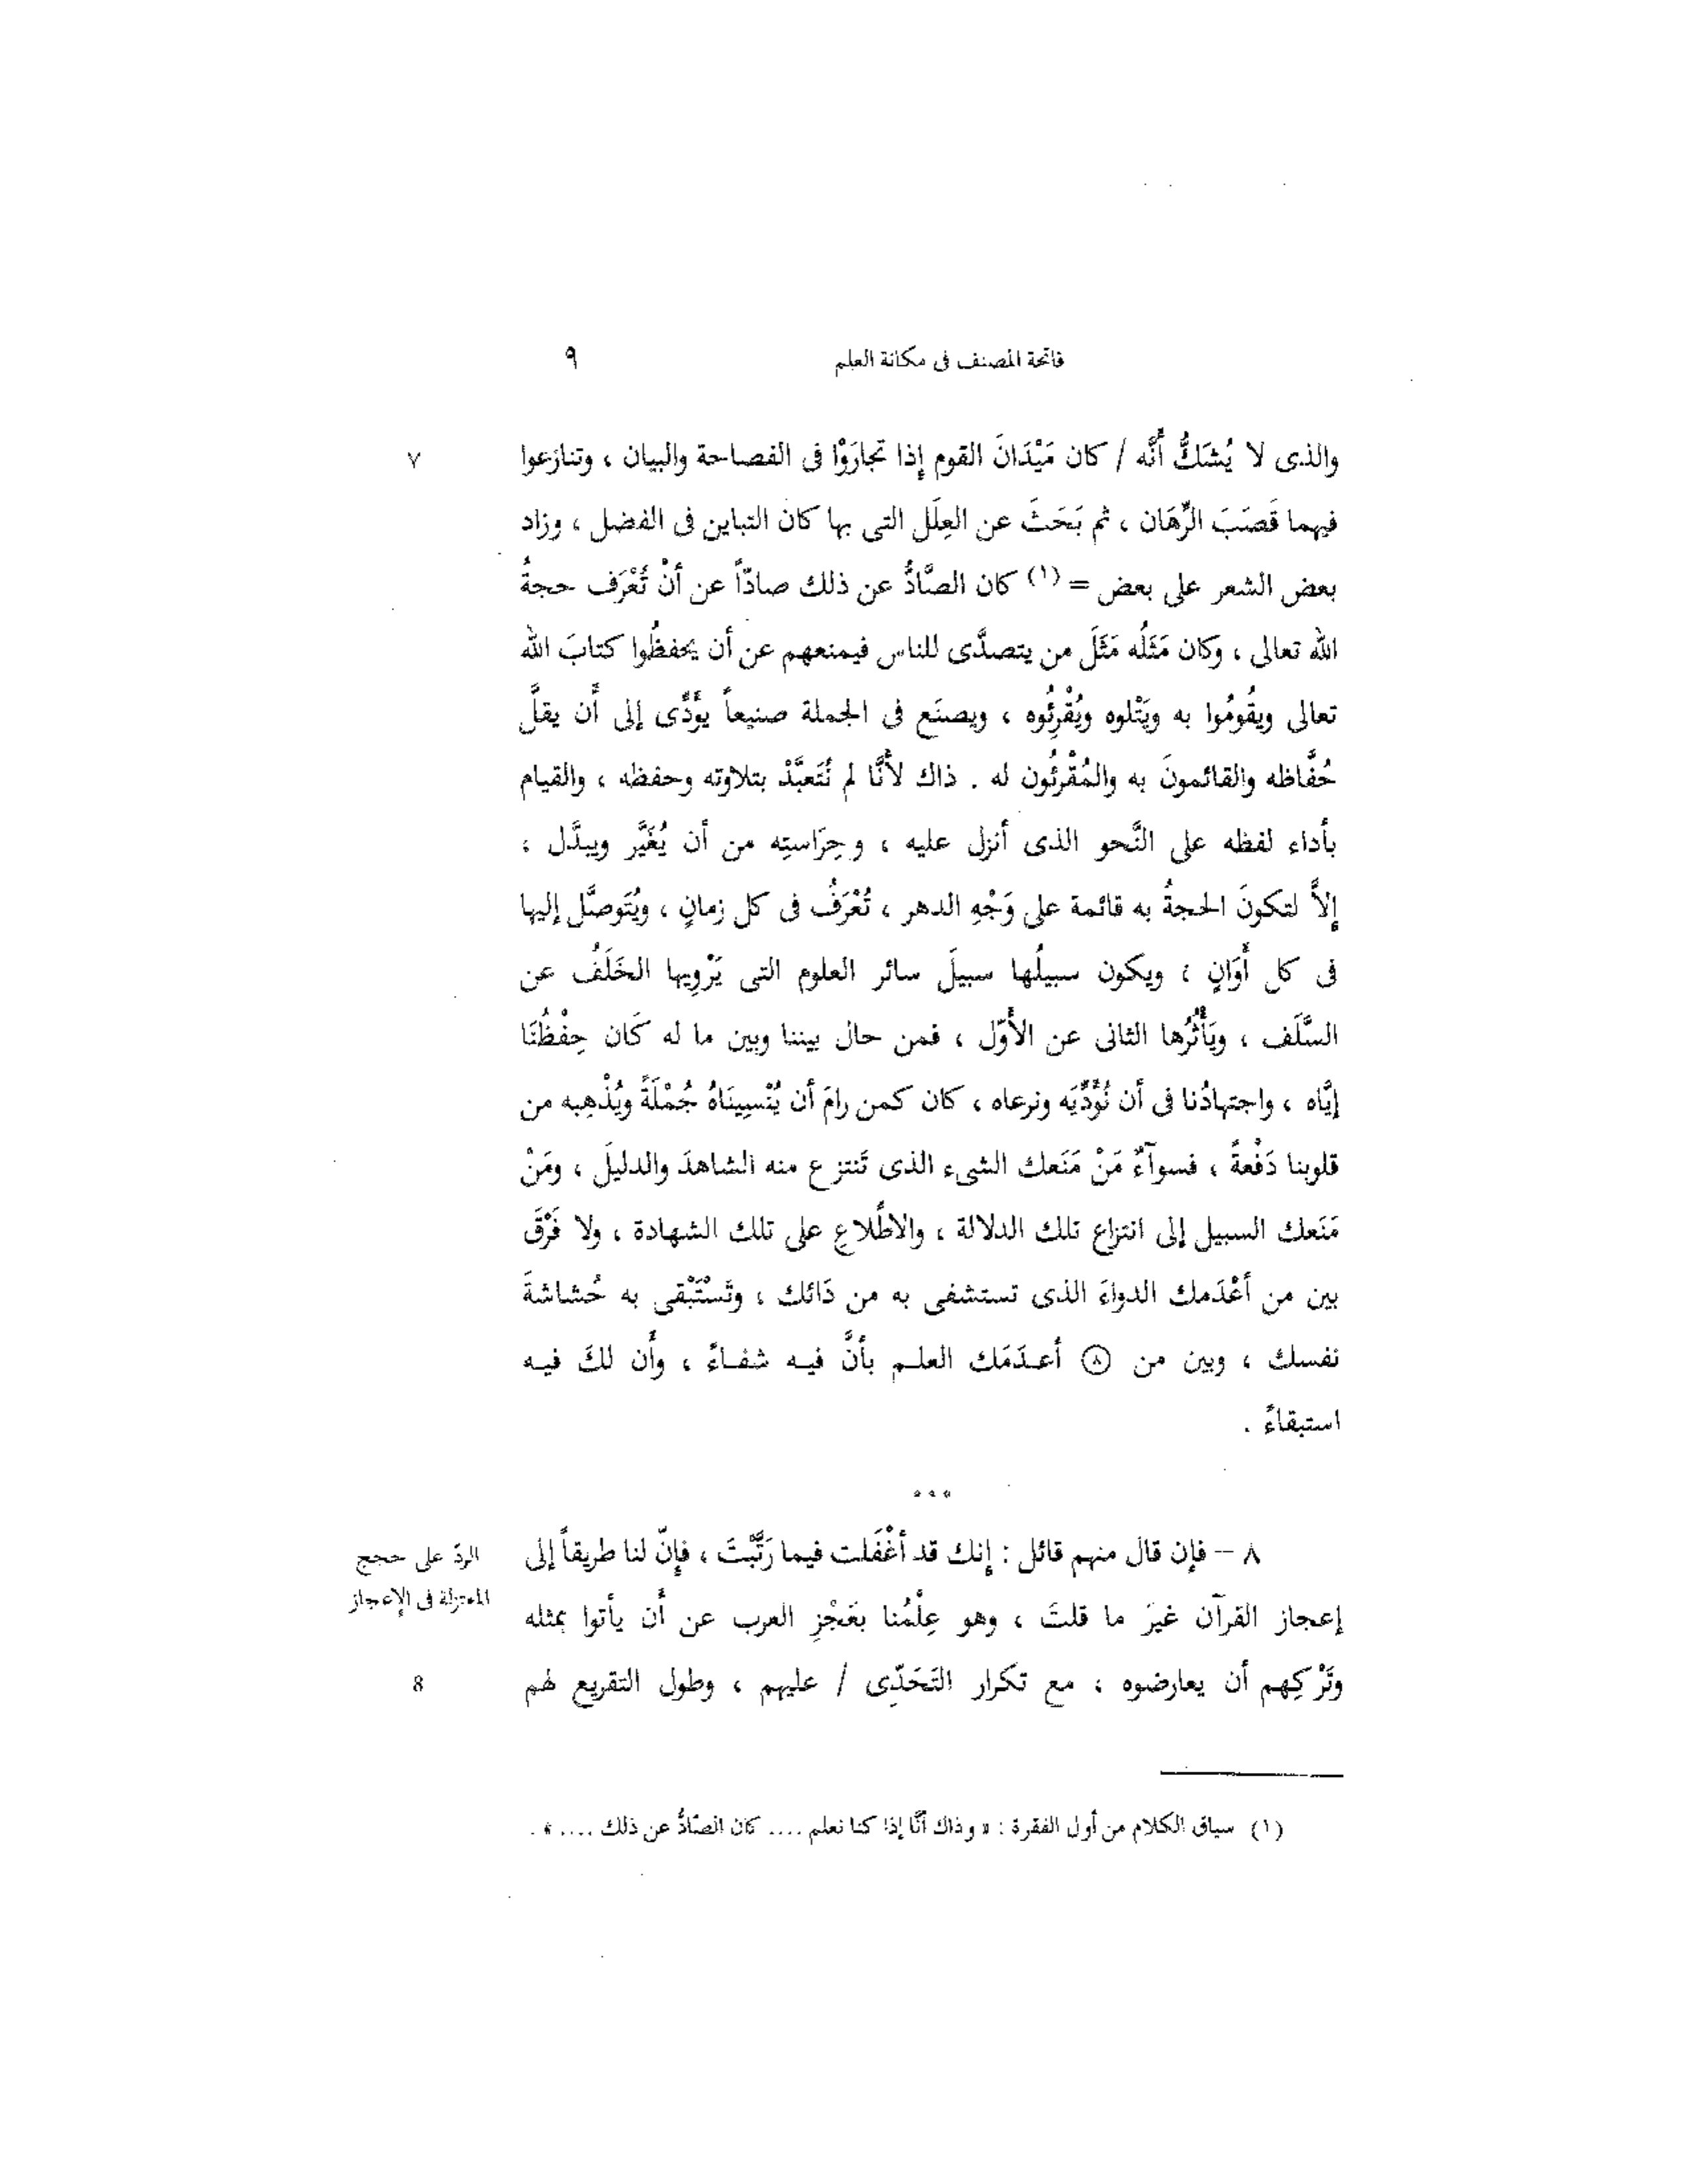 فاتحة المصنف فى مكانة العلم ٩
والذى لا يُشَكُّ أَنَّه / كان مَيْدَانَ القوم إِذا تجارَوْا فى الفصاحة والبيان ، وتنازعوا ٧
فيهما قَصَبَ الرِّهَان ، ثم بَحَثَ عن العِلَل التى بها كان التباين فى الفضل ، وزاد
بعض الشعر على بعض = (١) كان الصَّادُّ عن ذلك صادّاً عن أنْ تُعْرَف حجةُ
الله تعالى ، وكان مَثَلُه مَثَلَ من يتصدَّى للناس فيمنعهم عن أن يحفظُوا كتابَ الله
تعالى ويقُومُوا به ويَتْلوه ويُقْرِئُوه ، ويصنَع فى الجملة صنيعاً يؤَدِّى إلى أَن يقلَّ
حُفَّاظه والقائمونَ به والمُقْرِئُون له . ذاك لأَنَّا لم نُتَعبَّدْ بتلاوته وحفظه ، والقيام
بأداء لفظه على النَّحو الذى أنزل عليه ، وحِرَاستِه من أن يُغَيَّر ويبدَّل ،
إِلاَّ لتكونَ الحجةُ به قائمة على وَجْهِ الدهر ، تُعْرَفُ فى كل زمانٍ ، ويُتَوصَّل إليها
فى كل أَوَانٍ ؛ ويكون سبيلُها سبيلَ سائر العلوم التى يَرْوِيها الخَلَفُ عن
السَّلَف ، ويَأْثُرُها الثانى عن الأَوّل ، فمن حال بيننا وبين ما له كَان حِفْظُنَا
إيَّاه ، واجتهادُنا فى أن نُؤَدِّيَه ونرعاه ، كان كمن رامَ أن يُنْسِينَاهُ جُمْلَةً ويُذْهِبه من
قلوبنا دَفْعةً ، فسوآءٌ مَنْ مَنَعك الشىء الذى تَنتزع منه الشاهدَ والدليلَ ، ومَنْ
مَنَعك السبيل إلى انتزاع تلك الدلالة ، والاطِّلاعِ على تلك الشهادة ، ولا فَرْقَ
بين من أعْدَمك الدواءَ الذى تستشفى به من دَائك ، وتَسْتَبْقى به حُشاشةَ
نفسك ، وبين من ⑧ أعدَمَك العلم بأنَّ فيه شفاءً ، وأَن لكَ فيه
استبقاءً .
* * *
٨ – فإن قال منهم قائل : إِنك قد أغْفَلت فيما رَتَّبْتَ ، فإِنّ لنا طريقاً إلى
الردّ على حجج
المعتزلة فى الإعجاز
إعجاز القرآن غيرَ ما قلتَ ، وهو عِلْمُنا بعَجْزِ العرب عن أَن يأتوا بمثله
وتَرْكِهم أن يعارضوه ، مع تكرار التَحَدِّى / عليهم ، وطول التقريع لهم 8
(١) سياق الكلام من أول الفقرة : « وذاك أنَّا إذا كنا نعلم .... كان الصَّادُّ عن ذلك .... » .